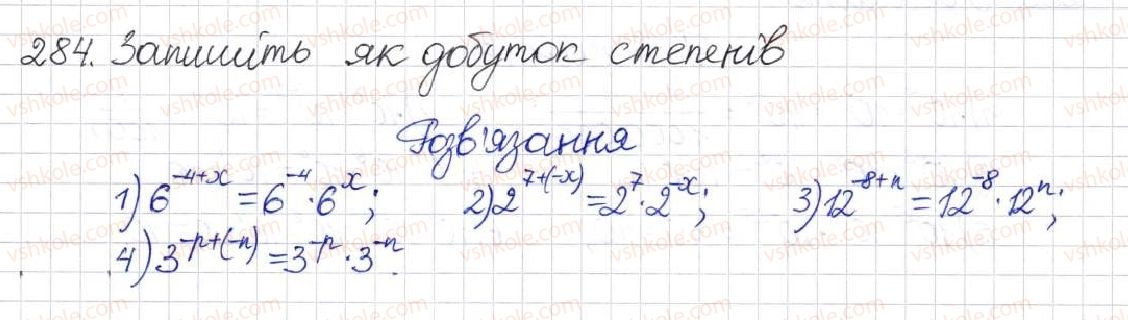 284. Запишіть як добуток степенів
Розв'язання
1) 6^{-4+x} = 6^{-4} · 6^{x}; 2) 2^{7+(-x)} = 2^{7} · 2^{-x}; 3) 12^{-8+n} = 12^{-8} · 12^{n};
4) 3^{-p+(-n)} = 3^{-p} · 3^{-n}.